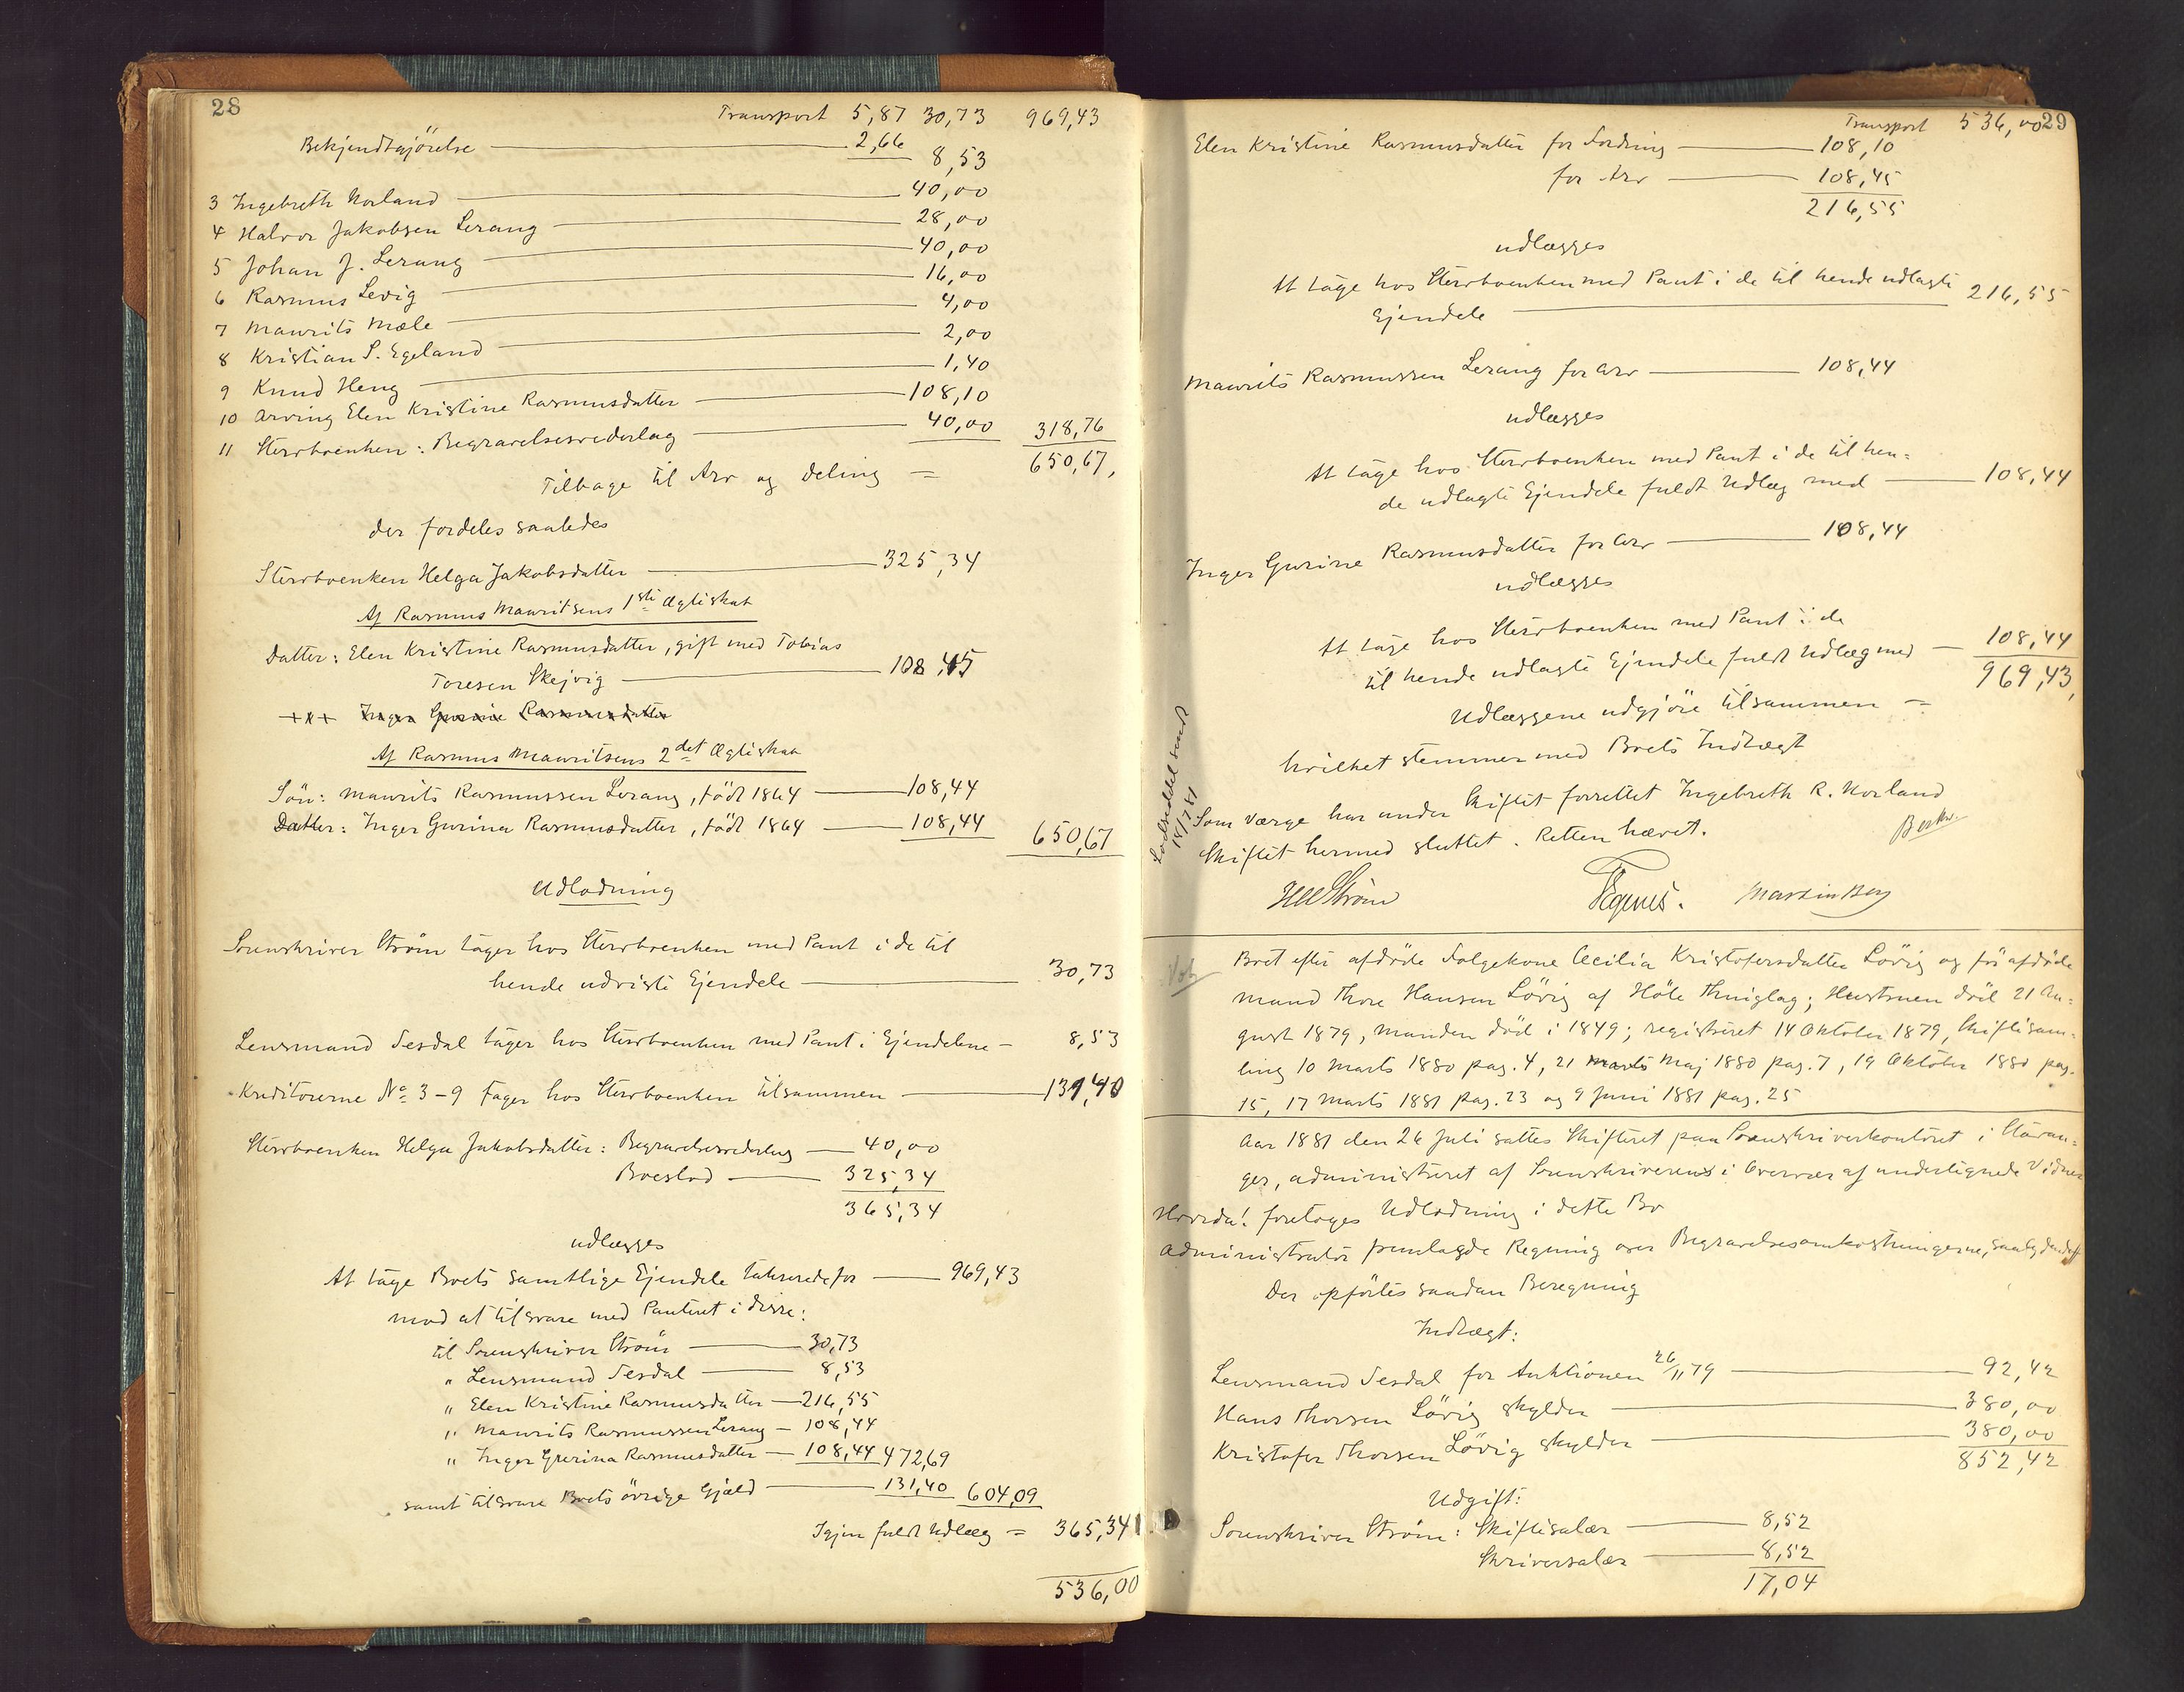 28
Transport 5,87 30,73 969,43
Bekjendtgjörelse 2,66 8,53
3 Ingebreth Norland 40,00
4 Halvor Jakobsen Lerang 28,00
5 Johan J. Lerang 40,00
6 Rasmus Levig 16,00
7 Maurits Mæle 4,00
8 Kristian S. Egeland 2,00
9 Knud Heng 1,40
10 Arving Elen Kristine Rasmusdatter 108,10
11 Stervboenken: Begravelsesvederlag 40,00 318,76
Tilbage til Arv og Deling = 650,67,
der fordeles saaledes
Stervboenken Helga Jakobsdatter 325,34
Af Rasmus Mauritsens 1ste Ægteskab
Datter: Elen Kristine Rasmusdatter, gift med Tobias
Toresen Skejvig 108,45
+x+ Inger Gurine Rasmusdatter
Af Rasmus Mauritsens 2det Ægteskab
Sön: Maurits Rasmussen Lerang, född 1864 108,44
Datter: Inger Gurina Rasmusdatter, född 1864 108,44 650,67
Udlodning
Sorenskriver Ström tager hos Stervboenken med Pant i de til
hende udviste Ejendele 30,73
Lensmand Sesdal tager hos Stervboenken med Pant i Ejendelene - 8,53
Kreditorerne No 3-9 tager hos Stervboenken tilsammen 131,40
Stervboenken Helga Jakobsdatter: Begravelsesvederlag 40,00
Boeslod 325,34
365,34
udlægges
At tage Boets samtlige Ejendele taxerede for 969,43
mod at tilsvare med Panteret i disse:
til Sorenskriver Ström 30,73
" Lensmand Sesdal 8,53
" Elen Kristine Rasmusdatter 216,55
" Maurits Rasmussen Lerang - 108,44
" Inger Gurina Rasmusdatter - 108,44 472,69
samt tilsvare Boets övrige Gjæld 131,40 604,09
Igjen fuldt Udlæg = 365,34
536,00
29
Transport 536,00
Elen Kristine Rasmusdatter for Fordring 108,10
for Arv 108,45
216,55
udlægges
At tage hos Stervboenken med Pant i de til hende udlagte
Ejendele 216,55
Maurits Rasmussen Lerang for Arv 108,44
udlægges
At tage hos Stervboenken med Pant i de til hen=
de udlagte Ejendele fuldt Udlæg med 108,44
Inger Gurine Rasmusdatter for Arv 108,44
udlægges
At tage hos Stervboenken med Pant i de
til hende udlagte Ejendele fuldt Udlæg med - 108,44
Udlæggene udgjöre tilsammen = 969,43,
hvilket stemmer med Boets Indtægt
Som Værge har under Skiftet forrettet Ingebreth R. Norland
Skiftet hermed sluttet. Retten hævet.
Lodseddel sendt
18/7 81
Ström Martin Berg
Boet efter afdöde Folgekone Cecilia Kristofersdatter Lövig og för afdöde
Mand Thore Hansen Lövig af Höle Thinglag; Hustruen död 21 Au=
gust 1879, Manden död i 1849; registreret 14 Oktober 1879, Skiftesam=
ling 10 Marts 1880 pag. 4, 21 Marts Maj 1880 pag. 7, 19 Oktober 1880 pag.
15, 17 Marts 1881 pag. 23 og 9 Juni 1881 pag. 25
Aar 1881 den 26 Juli sattes Skifteret paa Sorenskriverkontoret i Stavan=
ger, administreret af Sorenskriveren i Overvær af undertegnede Vidner
Hvorda! foretoges Udlodning i dette Bo
Administrator fremlagde Regning over Begravelsesomkostningerne,
Der opförtes saadan Beregning
Indtægt:
Lensmand Sesdal for Auktionen 26/11 79 92,42
Hans Thorsen Lövig skylder 380,00
Kristofer Thorsen Lövig skylder 380,00
852,42
Udgift:
Sorenskriver Ström: Skiftesalær 8,52
Skriversalær 8,52
17,04